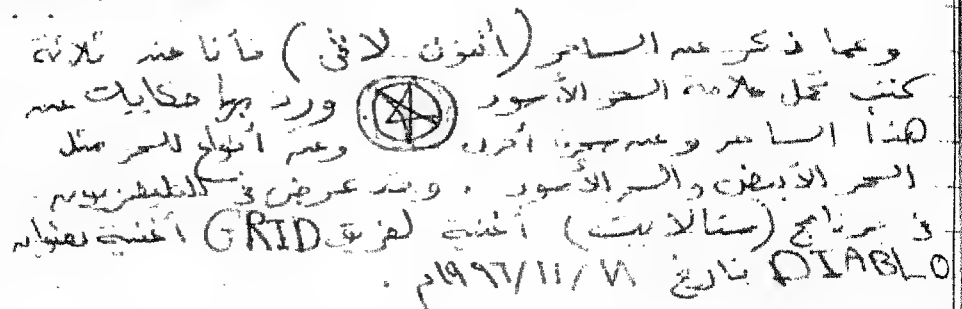 وعما ذكر عن الساحر (أنتون لافي) فأنا عند ثلاثة
كتب تحمل علامة السحر الأسود ورد بها حكايات عن
هذا الساحر وعن أخرى وعن أنواع للسحر مثل
السحر الأبيض والسحر الأسود . وقد عرض في التليفزيون
في برنامج (ستالايت) أغنية لفريق GRID أغنية بعنوان
DIABLO بتاريخ ١٩٩٦/١١/ م .